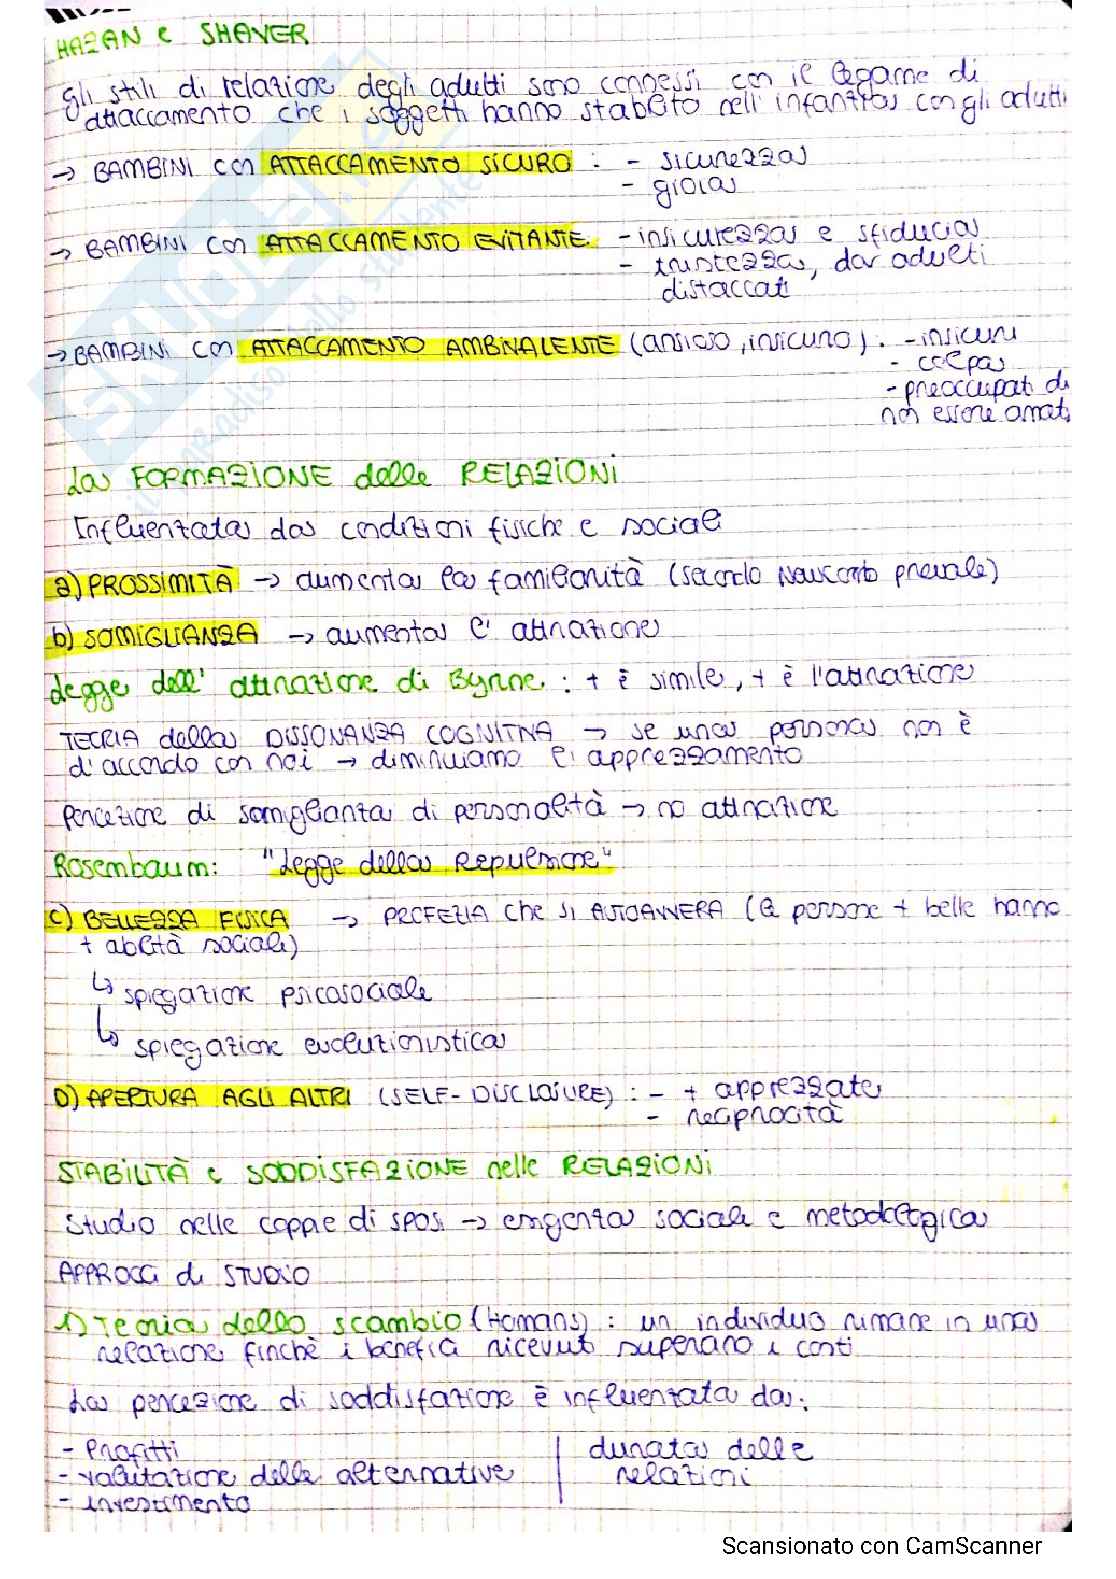 HAZAN e SHAVER
gli stili di relazione degli adulti sono connessi con il legame di
attaccamento che i soggetti hanno stabilito nell'infanzia con gli adulti
→ BAMBINI con ATTACCAMENTO SICURO : - sicurezza
- gioia
→ BAMBINI con ATTACCAMENTO EVITANTE - insicurezza e sfiducia
- tristezza, da adulti
distaccati
→ BAMBINI con ATTACCAMENTO AMBIVALENTE (ansioso, insicuro) : - insicuri
- colpa
- preoccupati di
non essere amati
La FORMAZIONE delle RELAZIONI
Influenzata da condizioni fisiche e sociali
a) PROSSIMITÀ → aumenta la familiarità (secondo Newcomb prevale)
b) SOMIGLIANZA → aumenta l'attrazione
Legge dell'attrazione di Byrne : + è simile, + è l'attrazione
TEORIA della DISSONANZA COGNITIVA → se una persona non è
d'accordo con noi → diminuiamo l'apprezzamento
Percezione di somiglianza di personalità → no attrazione
Rosembaum: "Legge della Repulsione"
c) BELLEZZA FISICA → PROFEZIA che si AUTOAVVERA (le persone + belle hanno
+ abilità sociali)
↳ spiegazione psicosociale
↳ spiegazione evoluzionistica
D) APERTURA AGLI ALTRI (SELF-DISCLOSURE) : - + apprezzate
- reciprocità
STABILITÀ e SODDISFAZIONE nelle RELAZIONI
Studio nelle coppie di sposi → esigenza sociale e metodologica
APPROCCI di STUDIO
1) Teoria dello scambio (Homans) : un individuo rimane in una
relazione finchè i benefici ricevuti superano i costi
La percezione di soddisfazione è influenzata da:
- Profitti
- valutazione delle alternative
- investimento
durata delle
relazioni
SKUOLA.net
il paradiso dello studente
Scansionato con CamScanner